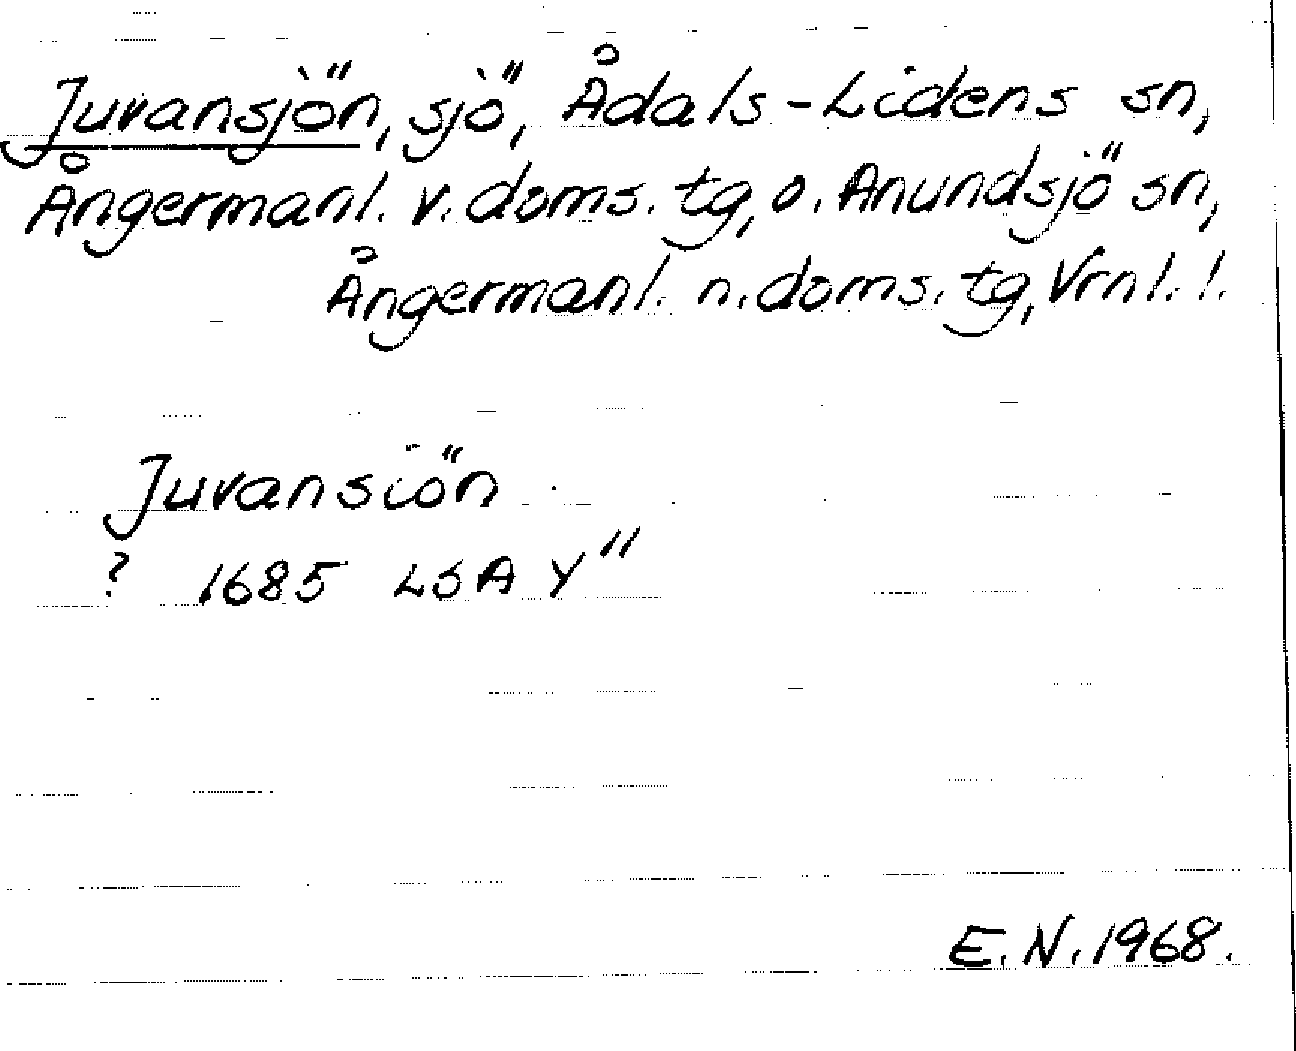 Juvansjön, sjö, Ådals-Lidens sn,
Ångermanl. v. doms. tg, o. Anundsjö sn,
Ångermanl. n. doms. tg, Vrnl. l.
Juvansiön
? 1685 LSA Y"
E.N. 1968.